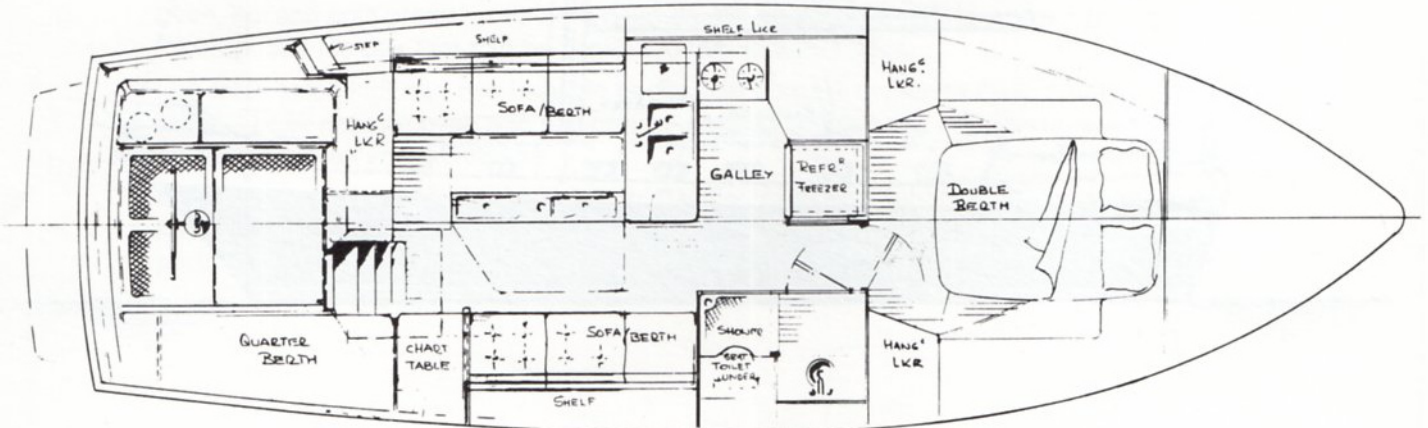 STEP
SHELF
SHELF LKR
HANG^G
LKR.
SOFA/BERTH
HANG^G
LKR
GALLEY
REFR^R
FREEZER
DOUBLE
BERTH
QUARTER
BERTH
CHART
TABLE
SOFA/BERTH
SHOWER
SEAT
TOILET
UNDER
HANG^G
LKR
SHELF